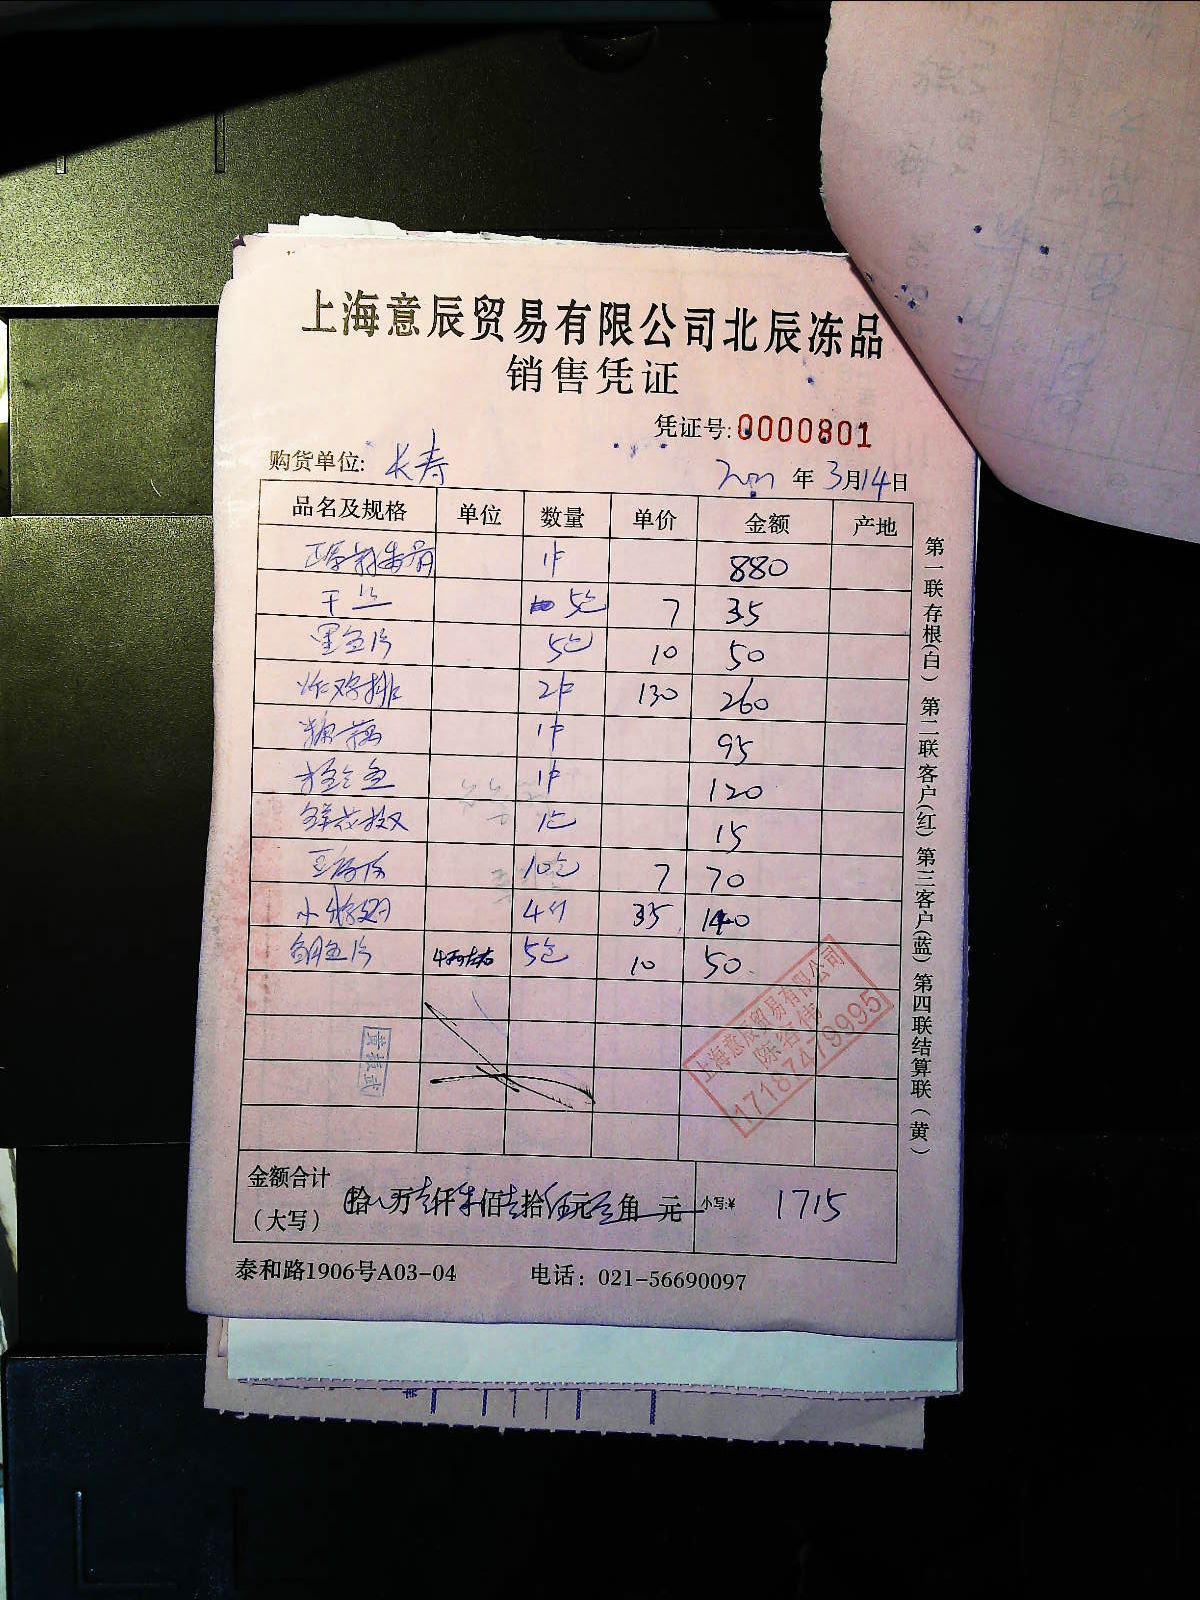 上海意辰贸易有限公司北辰冻品
销售凭证
凭证号: 0000801
购货单位: 长寿
年 3月14日
品名及规格 单位 数量 单价 金额 产地
1件 880
干丝 5包 7 35
黑鱼片 5包 10 50
炸鸡排 2件 130 260
糖藕 1件 95
1件 120
1包 15
10包 7 70
小 4个 35 140
鱼片 5包 10 50
上海意辰贸易有限公司
17187479995
金额合计
(大写)
拾 万壹仟柒佰壹拾伍元 角 元 小写:¥ 1715
泰和路1906号A03-04 电话: 021-56690097
第一联存根(白) 第二联客户(红) 第三客户(蓝) 第四联结算联(黄)